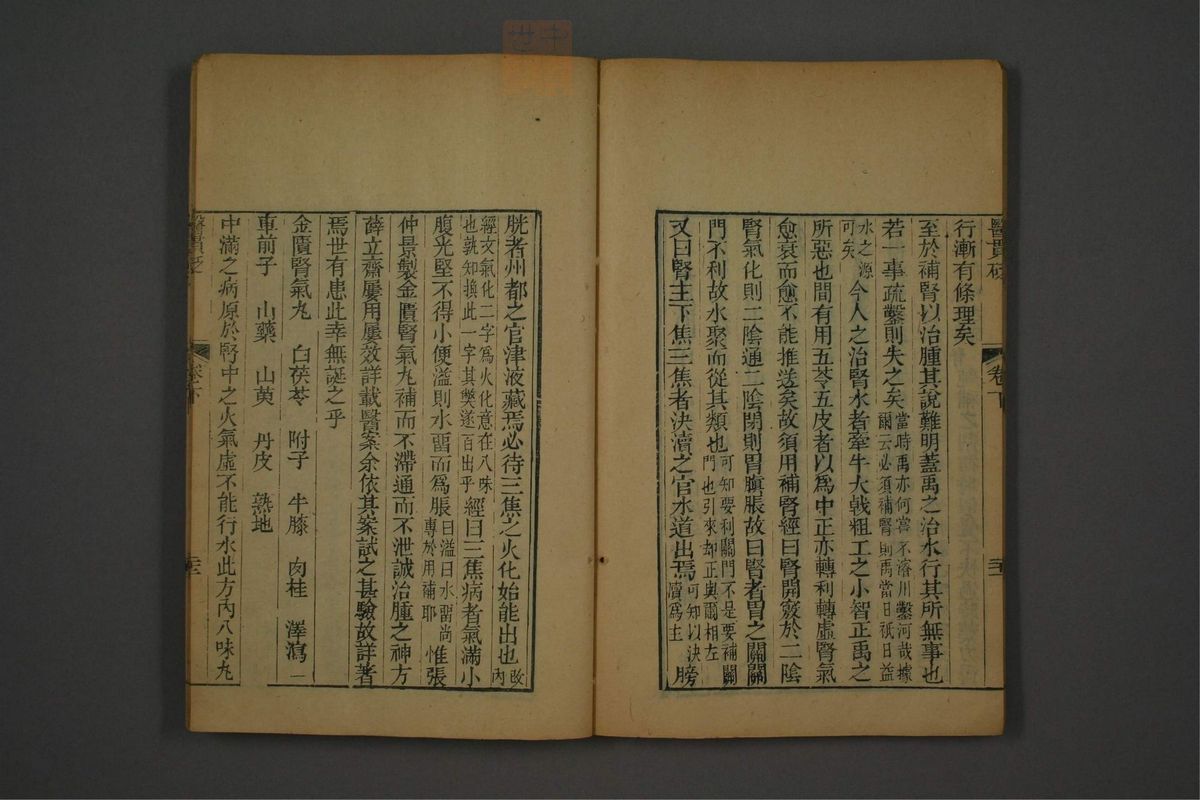 醫貫砭
卷下
行漸有條理矣
至於補腎以治腫其說難明蓋禹之治水行其所無事也
若一事疏鑿則失之矣當時禹亦何嘗不濬川鑿河哉據
爾云必須補腎則禹當日祇日益
水之源
可矣今人之治腎水者牽牛大戟粗工之小智正禹之
所惡也間有用五苓五皮者以爲中正亦轉利轉虛腎氣
愈衰而愈不能推送矣故須用補腎經曰腎開竅於二陰
腎氣化則二陰通二陰閉則胃䐜脹故曰腎者胃之關關
門不利故水聚而從其類也可知要利關門不是要補關
門也引來却正與爾相左
又曰腎主下焦三焦者決瀆之官水道出焉可知以決
瀆爲主
膀
胱者州都之官津液藏焉必待三焦之火化始能出也改
內
經文氣化二字爲火化意在八味
也孰知換此一字其弊遂百出乎經曰三焦病者氣滿小
腹光堅不得小便溢則水畱而爲脹曰溢曰水畱尚
專於用補耶惟張
仲景製金匱腎氣丸補而不滯通而不泄誠治腫之神方
薛立齋屢用屢效詳載醫案余依其案試之甚驗故詳著
焉世有患此幸無誕之乎
金匱腎氣丸 白茯苓 附子 牛膝 肉桂 澤瀉一
車前子 山藥 山萸 丹皮 熟地
中滿之病原於腎中之火氣虛不能行水此方內八味丸
醫貫砭
卷下